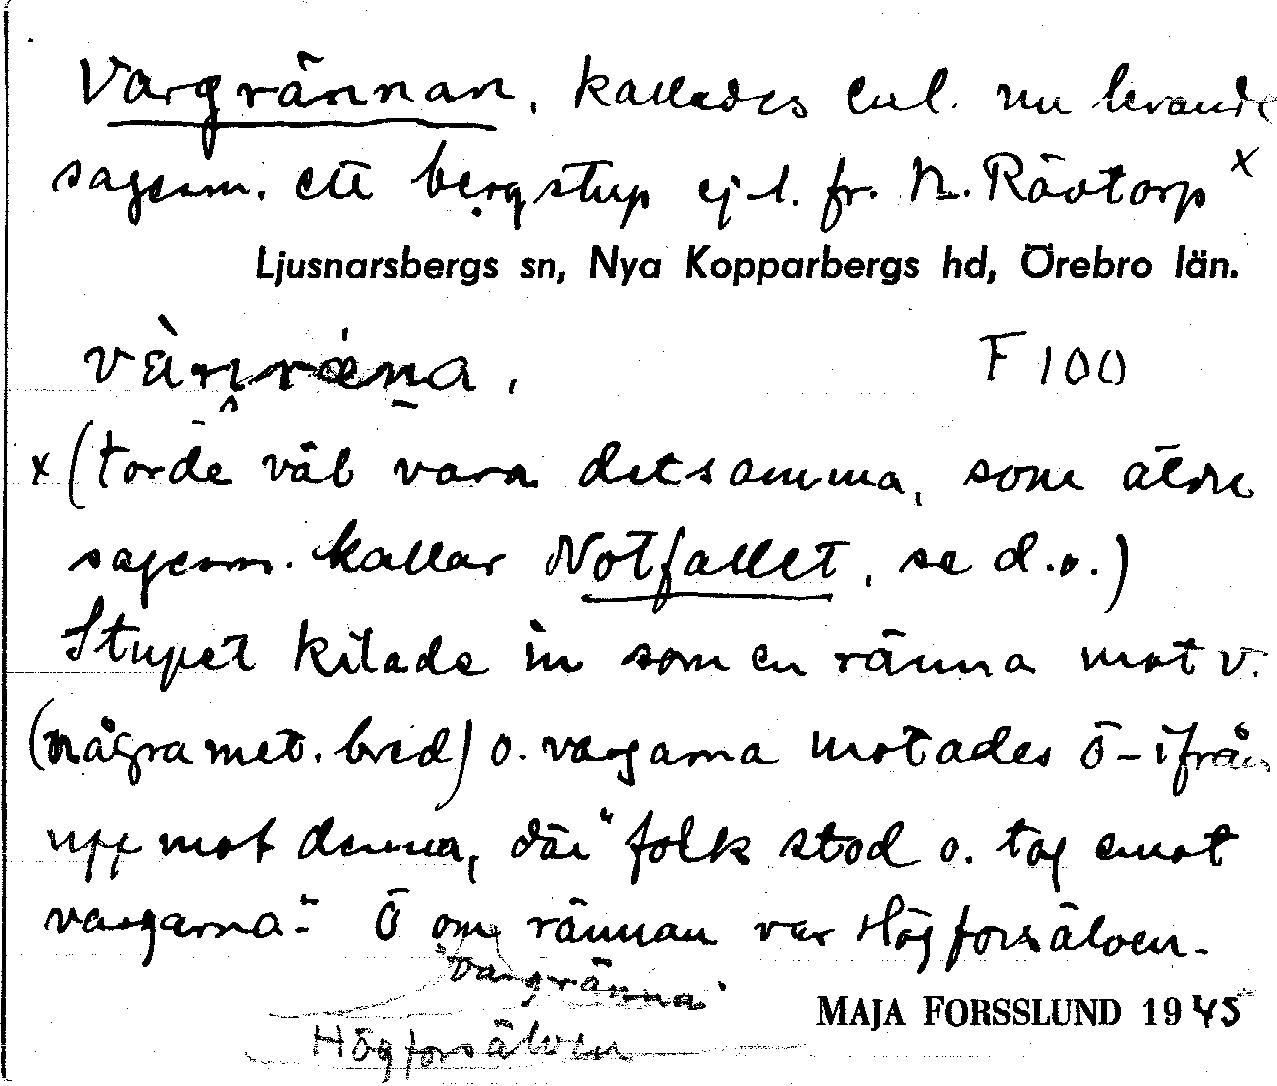 Vargrännan, kallades enl. nu levande
sagesm. ett bergstup ej l. fr. N. Rävtorp x
Ljusnarsbergs sn, Nya Kopparbergs hd, Örebro län.
F 100
x (torde väl vara detsamma, som äldre
sagesm. kallar Notfallet, se d.o.)
Stupet kilade in som en ränna mot v.
(några met. bred) o. vargarna motades ö-ifrån
upp mot denna, där "folk stod o. tog emot
vargarna". Ö om rännan var Högforsälven.
"Vargränna"
Högforsälven
MAJA FORSSLUND 1945